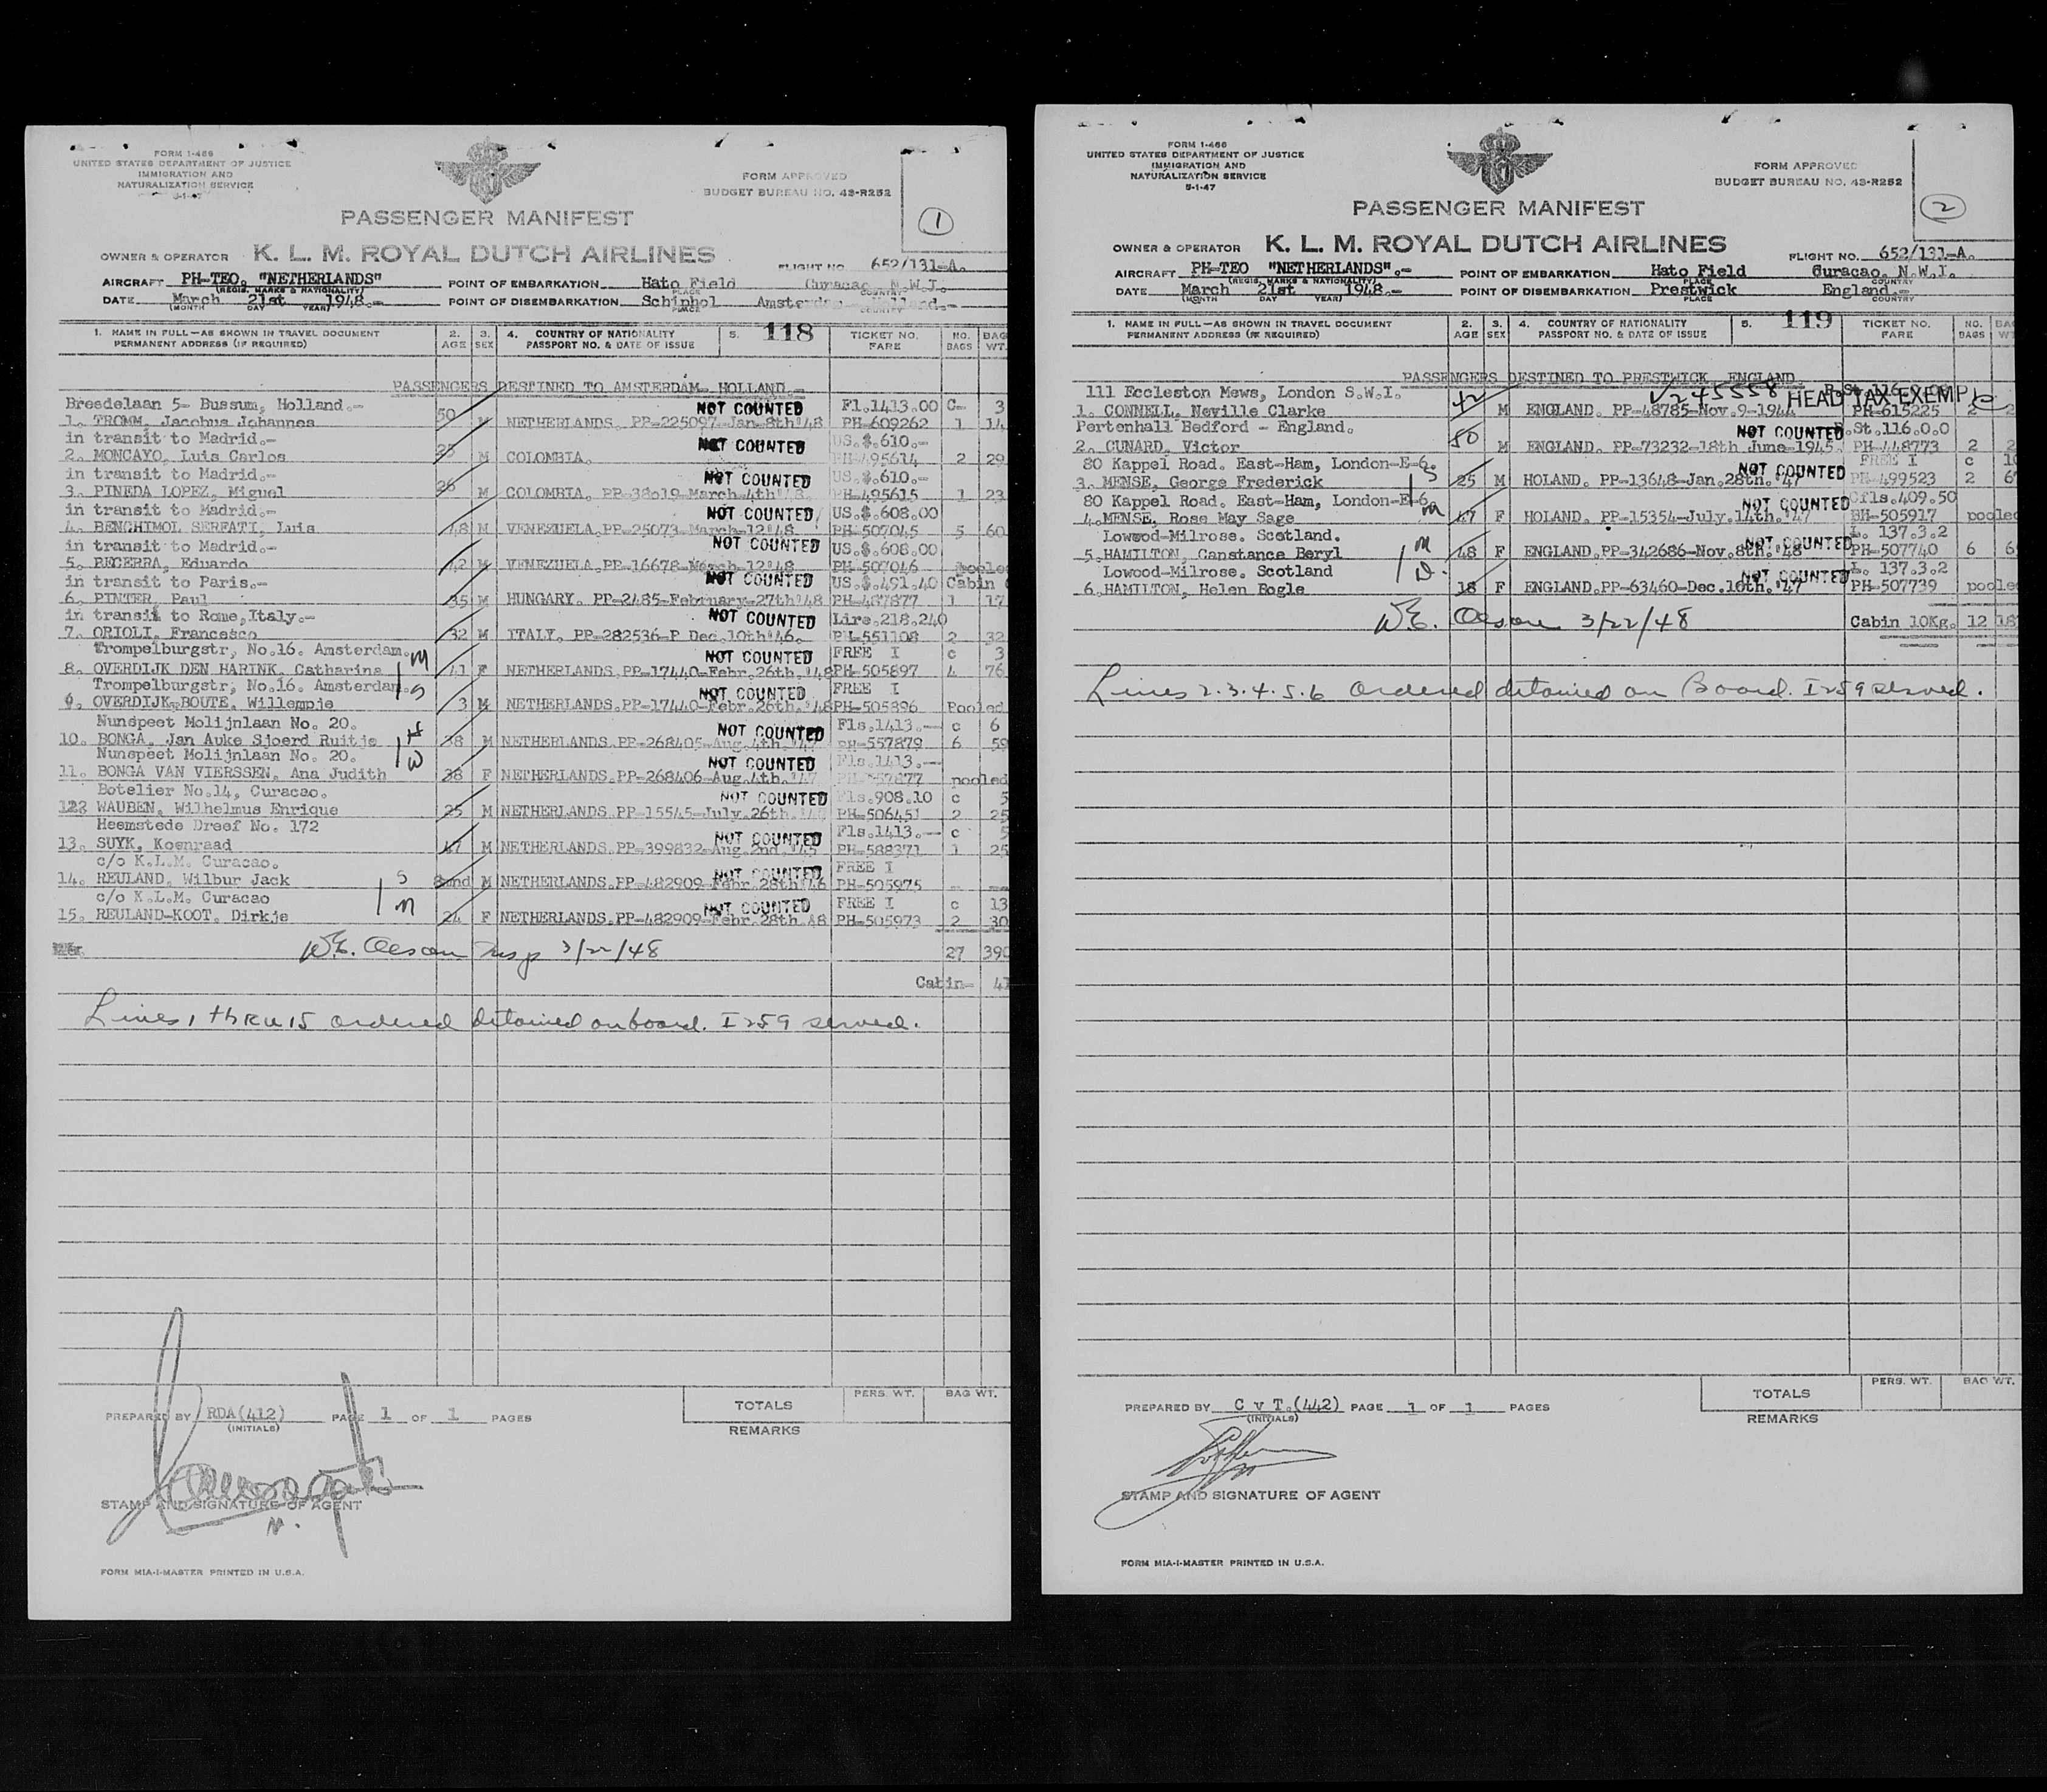 FORM I-466
UNITED STATES DEPARTMENT OF JUSTICE
IMMIGRATION AND
NATURALIZATION SERVICE
5-1-47
FORM APPROVED
BUDGET BUREAU NO. 43-R252
1
PASSENGER MANIFEST
OWNER & OPERATOR K. L. M. ROYAL DUTCH AIRLINES
FLIGHT NO. 652/131-A.
AIRCRAFT PH-TEO. "NETHERLANDS" POINT OF EMBARKATION Hato Field Curacao. N.W.I.
(REGIS. MARKS & NATIONALITY) PLACE COUNTRY
DATE March 21st 1948.- POINT OF DISEMBARKATION Schiphol Amsterdam Holland.-
(MONTH DAY YEAR) PLACE COUNTRY
1. NAME IN FULL—AS SHOWN IN TRAVEL DOCUMENT 2. 3. 4. COUNTRY OF NATIONALITY 5. 118 TICKET NO. NO. BAG
PERMANENT ADDRESS (IF REQUIRED) AGE SEX PASSPORT NO. & DATE OF ISSUE FARE BAGS WT.
PASSENGERS DESTINED TO AMSTERDAM- HOLLAND.-
Breedelaan 5- Bussum, Holland.- NOT COUNTED Fl.1413.00 C- 3
1. TROMM, Jacobus Johannes 50 M NETHERLANDS. PP-225097-Jan-8th'48 PH-609262 1 14
in transit to Madrid.- NOT COUNTED US.$.610.-
2. MONCAYO, Luis Carlos 25 M COLOMBIA. PH-495614 2 29
in transit to Madrid.- NOT COUNTED US.$.610.-
3. PINEDA LOPEZ, Miguel 26 M COLOMBIA. PP-38019-March-4th'48. PH-495615 1 23
in transit to Madrid.- NOT COUNTED US.$.608.00
4. BENCHIMOL SERFATI, Luis 48 M VENEZUELA.PP-25073-March-12'48 PH-507045 5 60
in transit to Madrid.- NOT COUNTED US.$.608.00
5. BECERRA, Eduardo 42 M VENEZUELA.PP-16678-March-12'48 PH-507046 pooled
in transit to Paris.- NOT COUNTED US.$.491.40 Cabin
6. PINTER, Paul 35 M HUNGARY. PP-2485-February-27th'48 PH-487877 1 17
in transit to Rome,Italy.- NOT COUNTED Lire.218.240
7. ORIOLI, Francesco 32 M ITALY. PP-282536-P Dec.10th'46. PH-551108 2 32
Trompelburgstr, No.16. Amsterdam. M NOT COUNTED FREE I c 3
8. OVERDIJK DEN HARINK. Catharina 41 F NETHERLANDS.PP-17440-Febr.26th.'48 PH-505897 4 76
Trompelburgstr, No.16. Amsterdam. S NOT COUNTED FREE I
9. OVERDIJK-BOUTE. Willempje 3 M NETHERLANDS.PP-17440-Febr.26th.'48 PH-505896 Pooled
Nunspeet Molijnlaan No. 20. H NOT COUNTED Fls.1413.— c 6
10. BONGA, Jan Auke Sjoerd Ruitje 38 M NETHERLANDS.PP-268405-Aug.4th.'47 PH-557879 6 59
Nunspeet Molijnlaan No. 20. W NOT COUNTED Fls.1413.—
11. BONGA VAN VIERSSEN, Ana Judith 38 F NETHERLANDS.PP-268406-Aug.4th.'47 pooled
Botelier No.14, Curacao. NOT COUNTED Fls.908.10 c 5
122 WAUBEN, Wilhelmus Enrique 25 M NETHERLANDS.PP-15545-July.26th. PH-506451 2 25
Heemstede Dreef No. 172 NOT COUNTED Fls.1413.— c 5
13. SUYK, Koenraad 47 M NETHERLANDS.PP-399832-Aug.2nd.'45 PH-588371 1 25
c/o K.L.M. Curacao. NOT COUNTED FREE I
14. REULAND, Wilbur Jack S M NETHERLANDS.PP-482909-Febr.28th'46 PH-505975 - -
c/o K.L.M. Curacao M NOT COUNTED FREE I c 13
15. REULAND-KOOT. Dirkje 24 F NETHERLANDS.PP-482909-Febr.28th.48 PH-505973 2 30
W.E. Oeson Insp 3/22/48 27 390
Cabin- 41
Lines 1 thru 15 ordered detained on board. I259 served.
TOTALS PERS. WT. BAG WT.
PREPARED BY RDA(412) PAGE 1 OF 1 PAGES
(INITIALS)
REMARKS
STAMP AND SIGNATURE OF AGENT
FORM MIA-I-MASTER PRINTED IN U.S.A.
FORM I-466
UNITED STATES DEPARTMENT OF JUSTICE
IMMIGRATION AND
NATURALIZATION SERVICE
5-1-47
FORM APPROVED
BUDGET BUREAU NO. 43-R252
2
PASSENGER MANIFEST
OWNER & OPERATOR K. L. M. ROYAL DUTCH AIRLINES
FLIGHT NO. 652/131-A.
AIRCRAFT PH-TEO "NETHERLANDS".- POINT OF EMBARKATION Hato Field Curacao. N.W.I.
(REGIS. MARKS & NATIONALITY) PLACE COUNTRY
DATE March 21st 1948.- POINT OF DISEMBARKATION Prestwick England.-
(MONTH DAY YEAR) PLACE COUNTRY
1. NAME IN FULL—AS SHOWN IN TRAVEL DOCUMENT 2. 3. 4. COUNTRY OF NATIONALITY 5. 119 TICKET NO. NO. BAG
PERMANENT ADDRESS (IF REQUIRED) AGE SEX PASSPORT NO. & DATE OF ISSUE FARE BAGS WT
PASSENGERS DESTINED TO PRESTWICK ENGLAND.
111 Eccleston Mews, London S.W.I. V245558 HEAD TAX EXEMPT
1. CONNELL. Neville Clarke 42 M ENGLAND. PP-48785-Nov.9-1944 PH-615225 2 2
Pertenhall Bedford - England. NOT COUNTED P.St.116.0.0
2. CUNARD, Victor 50 M ENGLAND. PP-73232-18th June-1945. PH-448773 2 2
80 Kappel Road. East-Ham, London-E-6. S NOT COUNTED FREE I c 10
3. MENSE, George Frederick 25 M HOLAND. PP-13648-Jan.28th.'47 PH-499523 2 6
80 Kappel Road. East-Ham, London-E-6. M NOT COUNTED Cfls.409.50
4.MENSE, Rose May Sage 47 F HOLAND. PP-15354-July.14th.'47 BH-505917 pooled
Lowood-Milrose. Scotland. M NOT COUNTED L. 137.3.2
5.HAMILTON, Canstance Beryl 48 F ENGLAND.PP-342686-Nov.8th.'48 PH-507740 6 6
Lowood-Milrose. Scotland D. NOT COUNTED L. 137.3.2
6.HAMILTON, Helen Bogle 18 F ENGLAND.PP-63460-Dec.16th.'47 PH-507739 pooled
W.E. Oeson 3/22/48 Cabin 10Kg. 12 18
Lines 2.3.4.5.6 ordered detained on Board. I259 served.
TOTALS PERS. WT. BAG WT.
PREPARED BY C v T.(442) PAGE 1 OF 1 PAGES
(INITIALS)
REMARKS
STAMP AND SIGNATURE OF AGENT
FORM MIA-I-MASTER PRINTED IN U.S.A.